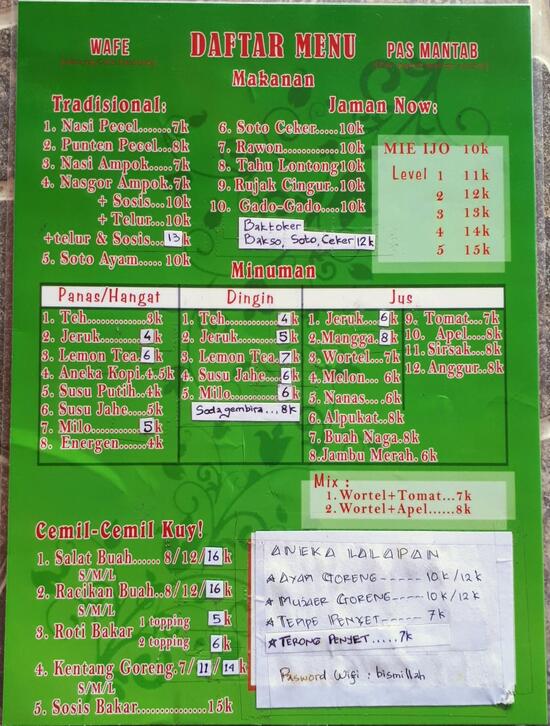 WAFE
DAFTAR MENU
PAS MANTAB
Makanan
Tradisional:
1. Nasi Pecel.......7k
2. Punten Pecel....8k
3. Nasi Ampok.....7k
4. Nasgor Ampok.7k
+ Sosis....10k
+ Telur....10k
+telur & Sosis.13k
5. Soto Ayam..... 10k
Jaman Now:
6. Soto Ceker.....10k
7. Rawon...........10k
8. Tahu Lontong10k
9. Rujak Cingur..10k
10. Gado-Gado...10k
Baktoker
Bakso, Soto, Ceker 12k
MIE IJO 10k
Level 1 11k
2 12k
3 13k
4 14k
5 15k
Minuman
Panas/Hangat
1. Teh...............3k
2. Jeruk..........4k
3. Lemon Tea.6k
4. Aneka Kopi.4.5k
5. Susu Putih..4k
6. Susu Jahe...5k
7. Milo............5k
8. Energen......4k
Dingin
1. Teh............4k
2. Jeruk.........5k
3. Lemon Tea.7k
4. Susu Jahe..6k
5. Milo..........6k
Soda gembira... 8k
Jus
1. Jeruk...6k
2. Mangga.8k
3. Wortel...7k
4. Melon... 6k
5. Nanas.... 6k
6. Alpukat...8k
7. Buah Naga.8k
8. Jambu Merah. 6k
9. Tomat...7k
10. Apel.....8k
11. Sirsak...8k
12. Anggur..8k
Mix :
1. Wortel+Tomat...7k
2. Wortel+Apel......8k
Cemil-Cemil Kuy!
1. Salat Buah...... 8/12/16k
S/M/L
2. Racikan Buah..8/12/16k
S/M/L
3. Roti Bakar 1 topping 5k
2 topping 6k
4. Kentang Goreng.7/11/14k
S/M/L
5. Sosis Bakar...............15k
ANEKA LALAPAN
★ AYAM GORENG ----- 10k/12k
★ MUJAER GORENG ---- 10k/12k
★ TEMPE PENYET ------ 7k
★ TERONG PENYET.....7k
Pasword Wifi : bismillah